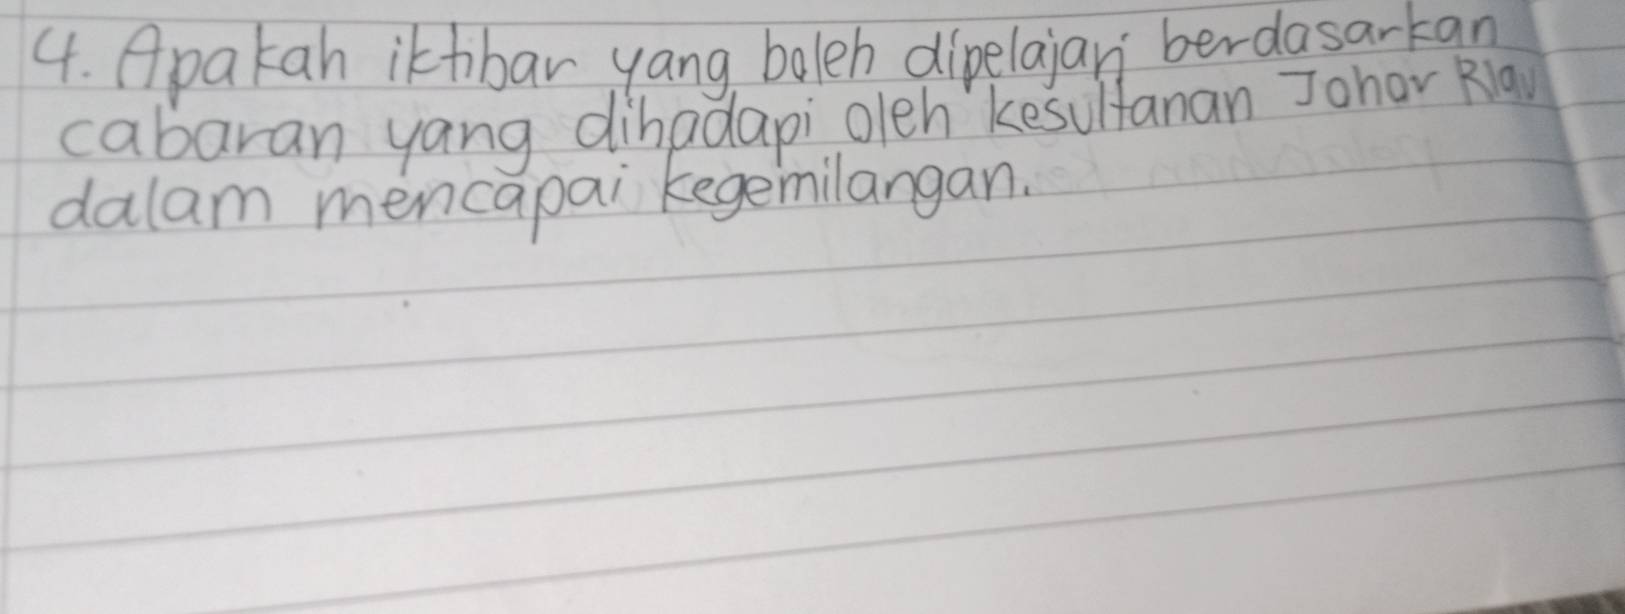 4. Apakah iktibar yang boleh dipelajari berdasarkan
cabaran yang dihadapi oleh kesultanan Johor Riau
dalam mencapai kegemilangan.